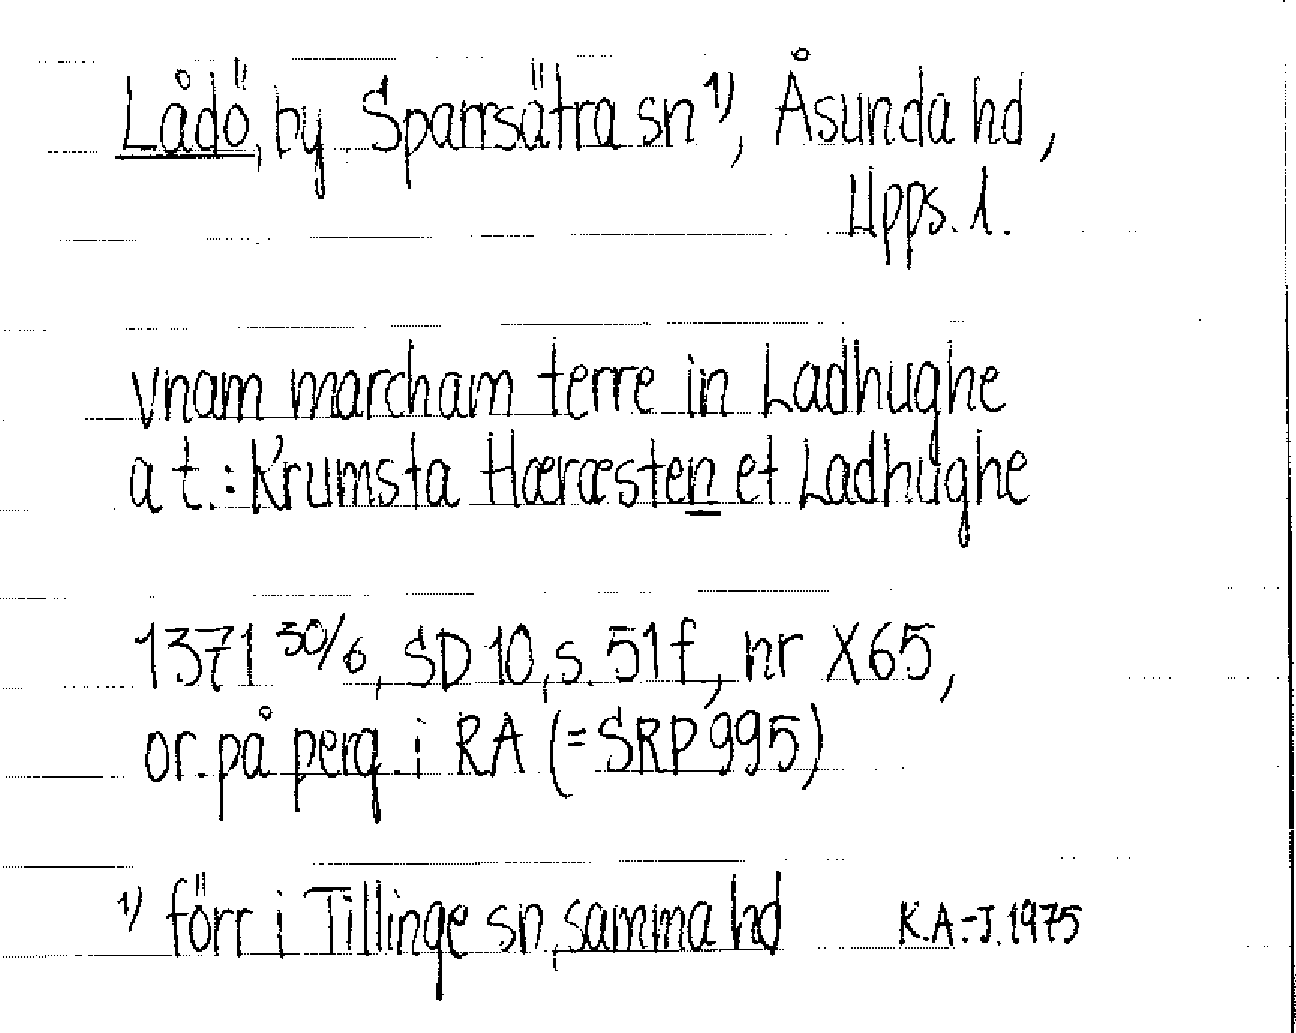 Lådö, by Sparrsätra sn 1), Åsunda hd,
Upps. l.
vnam marcham terre in Ladhughe
a t.: Krumsta Hæræsten et Ladhughe
1371 30/6, SD 10, s. 51 f, nr X65,
or. på perg. i RA (= SRP 995)
1) förr i Tillinge sn, samma hd K.A.-J. 1975